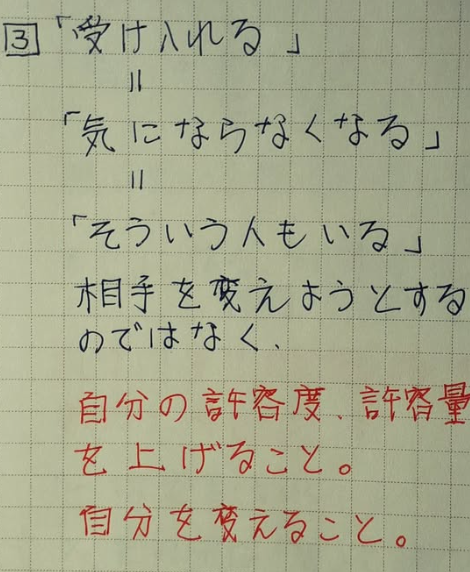 3 「受け入れる」
=
「気にならなくなる」
=
「そういう人もいる」
相手を変えようとする
のではなく、
自分の許容度、許容量
を上げること。
自分を変えること。